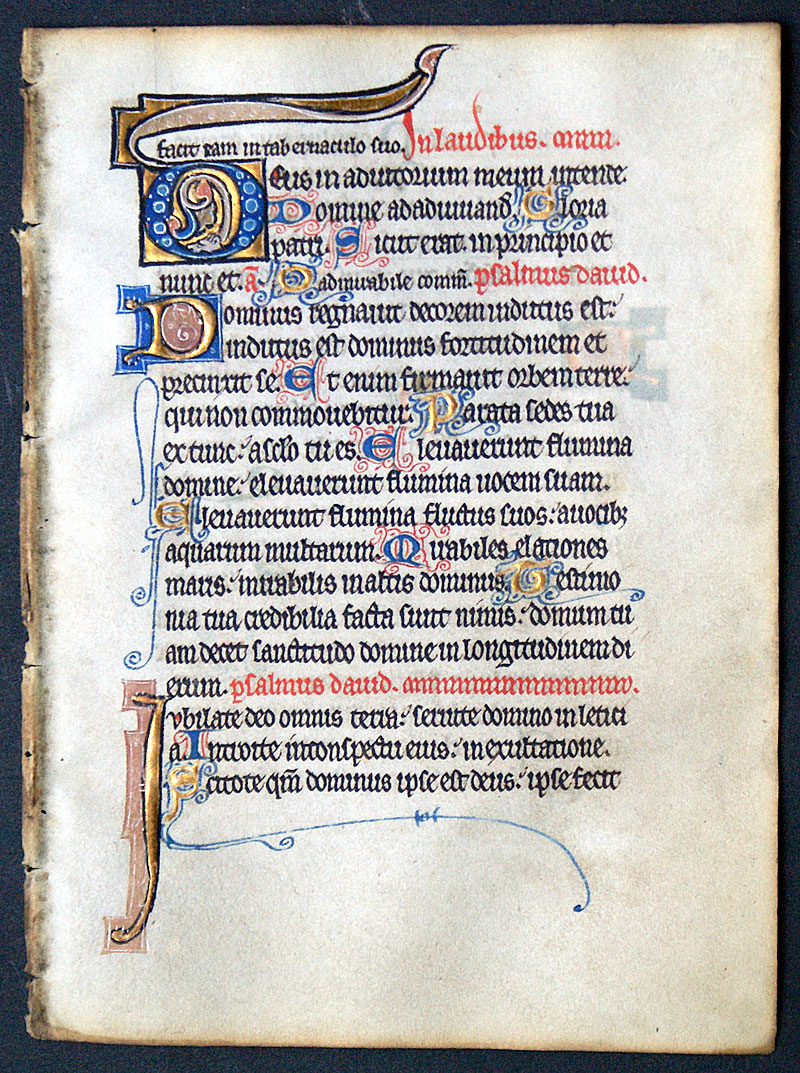 facit eam in tabernaculo suo. In laudibus.
Deus in adiutorium meum intende.
Domine ad adiuuand. Gloria
patri. Sicut erat. in principio et
nunc et. a. O admirabile comm. psalmus dauid.
Dominus regnauit decorem indutus est:
indutus est dominus fortitudinem et
precinxit se. Et enim firmauit orbem terre:
qui non commouebitur. Parata sedes tua
ex tunc: a sclo tu es. Eleuauerunt flumina
domine: eleuauerunt flumina uocem suam.
Eleuauerunt flumina fluctus suos: a uocibꝫ
aquarum multarum. Mirabiles elationes
maris: mirabilis in altis dominus. Testimo
nia tua credibilia facta sunt nimis: domum tu
am decet sanctitudo domine in longitudinem di
erum. psalmus dauid.
Iubilate deo omnis terra: seruite domino in letici
a. Introite in conspectu eius: in exultatione.
Scitote qm̄ dominus ipse est deus: ipse fecit